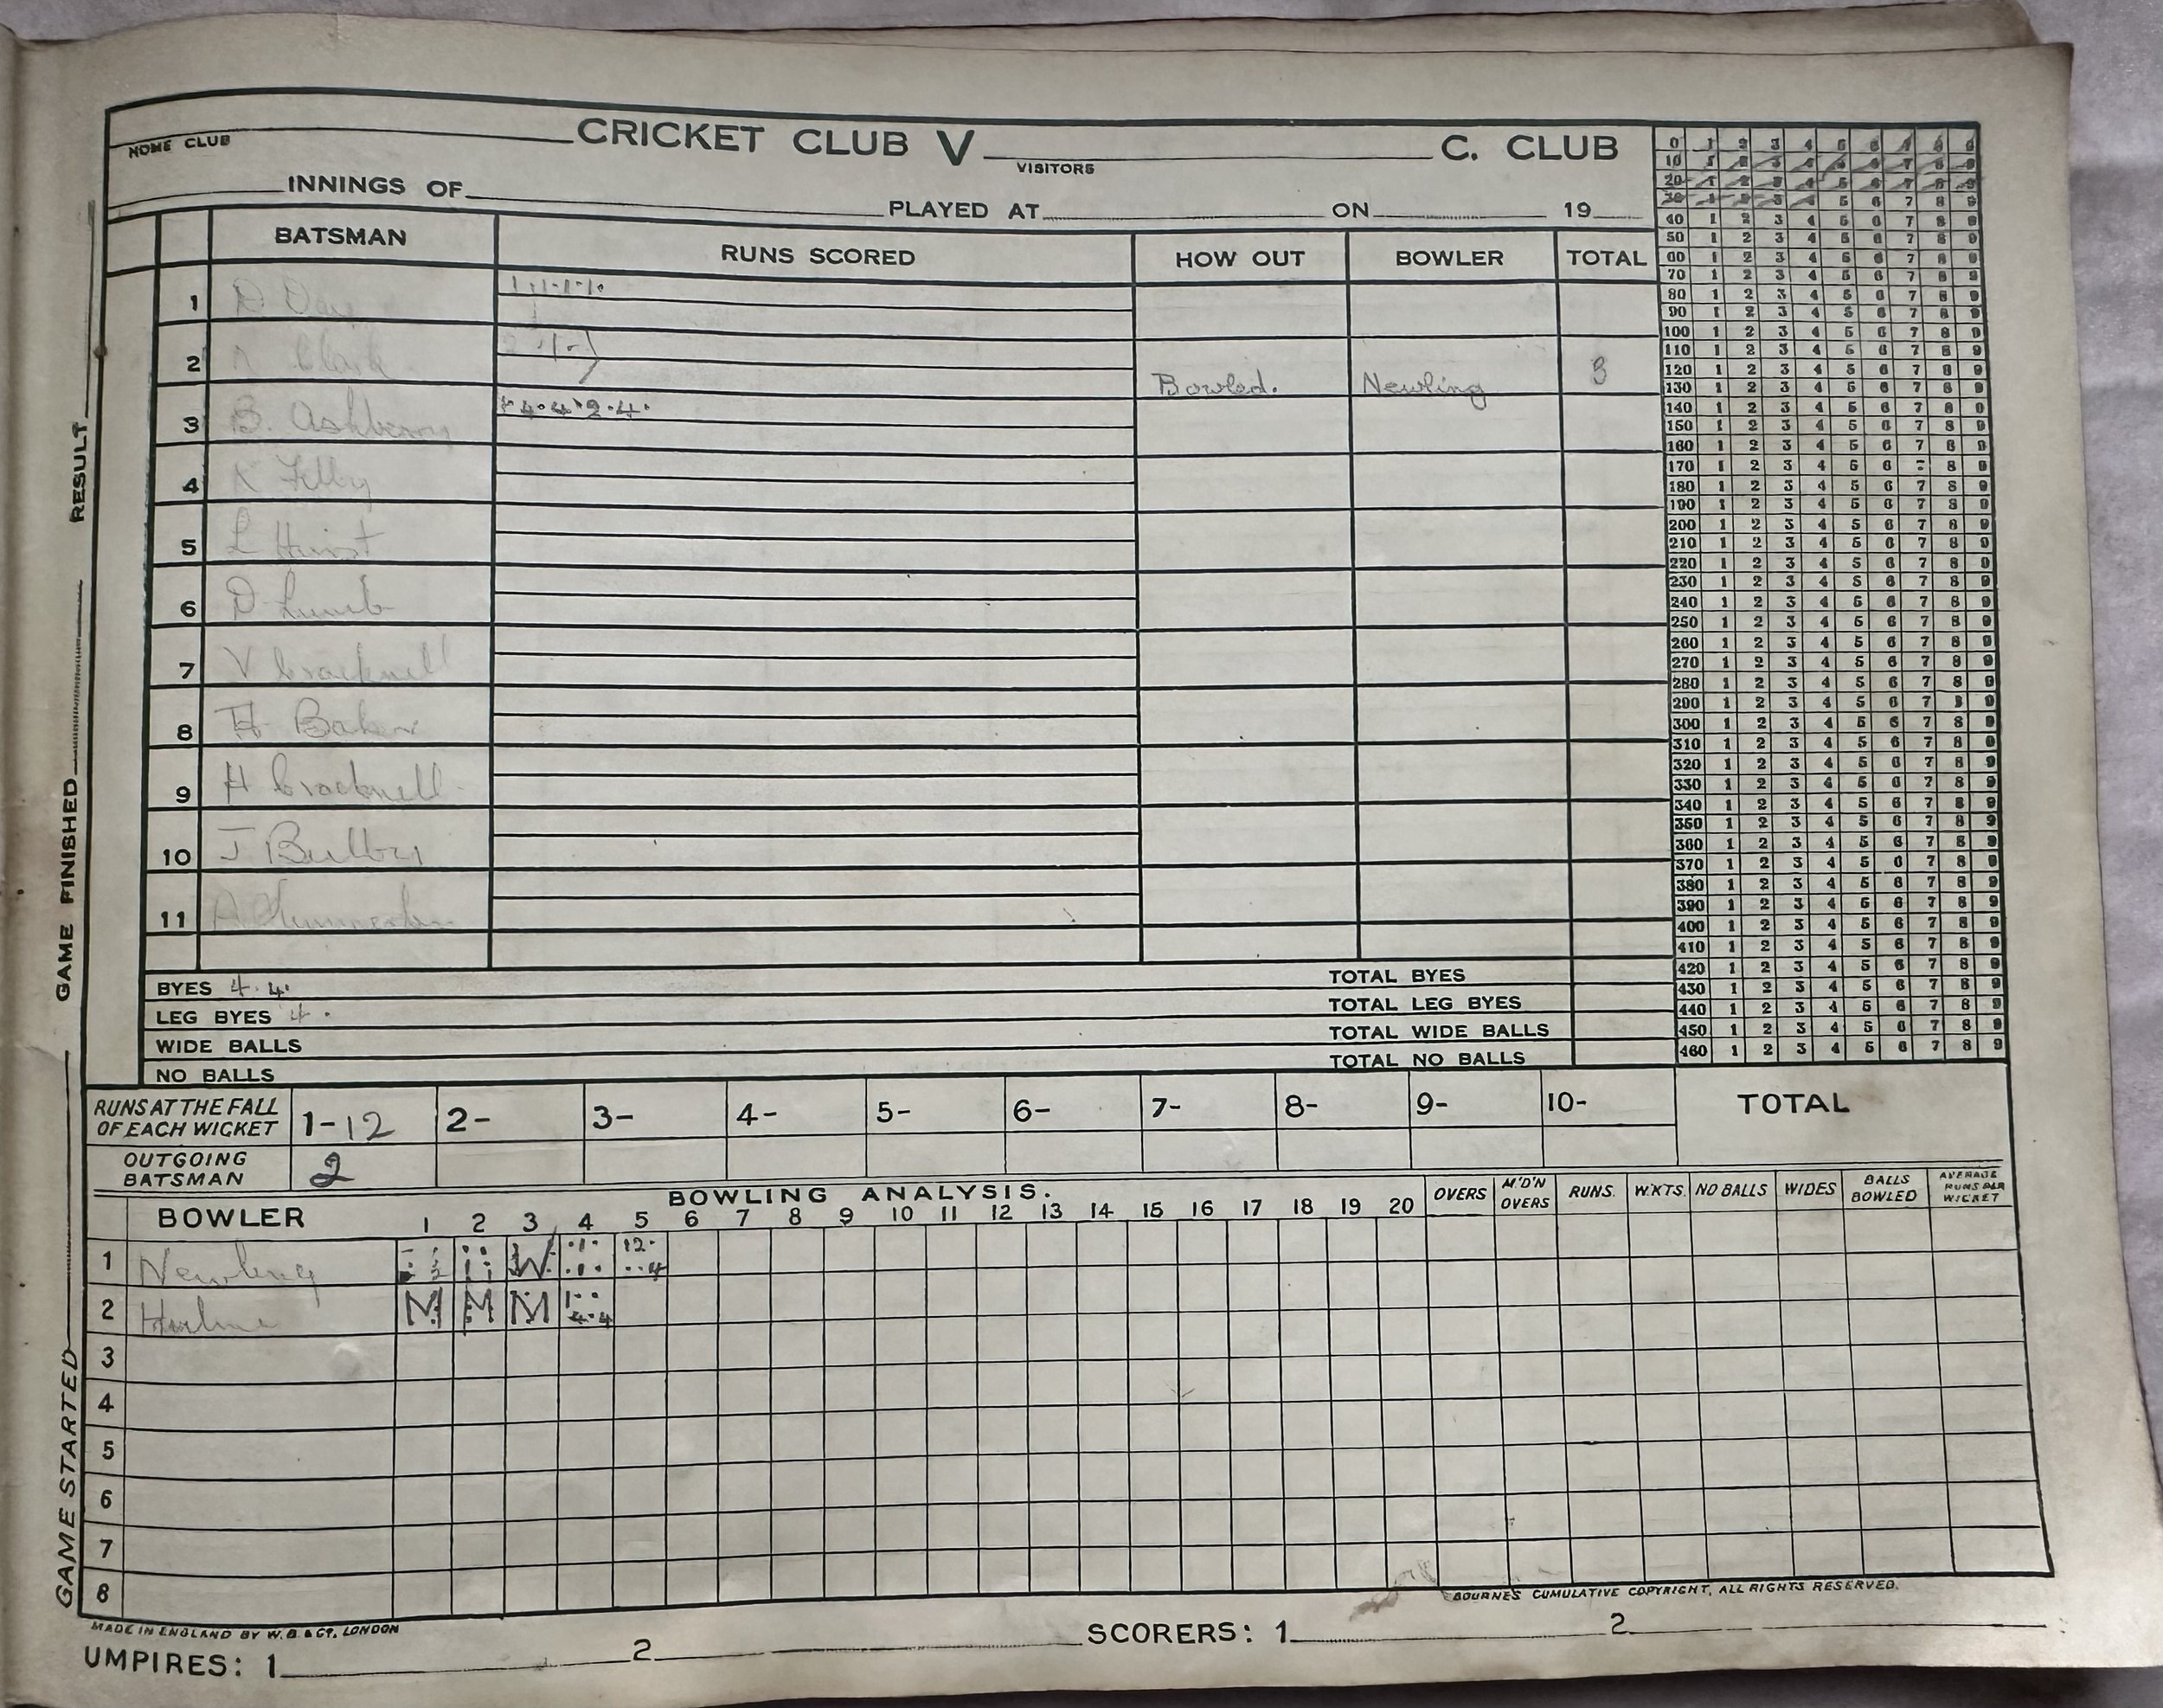 CRICKET CLUB V C. CLUB
HOME CLUB VISITORS
INNINGS OF PLAYED AT ON 19
BATSMAN RUNS SCORED HOW OUT BOWLER TOTAL
1 D Day
2 Clark Bowled. Newling 3
3 B. Ashberry 4.4.2.4.
4
5 L Hurst
6 D Lumb
7 V Cracknell
8 Baker
9 H Cracknell
10 J
11
BYES 4.4. TOTAL BYES
LEG BYES 4. TOTAL LEG BYES
WIDE BALLS TOTAL WIDE BALLS
NO BALLS TOTAL NO BALLS
RUNS AT THE FALL OF EACH WICKET 1-12 2- 3- 4- 5- 6- 7- 8- 9- 10- TOTAL
OUTGOING BATSMAN 2
BOWLING ANALYSIS.
BOWLER 1 2 3 4 5 6 7 8 9 10 11 12 13 14 15 16 17 18 19 20 OVERS M'D'N OVERS RUNS. W'KTS. NO BALLS WIDES BALLS BOWLED AVERAGE RUNS PER WICKET
1 Newling W
2 M M M
3
4
5
6
7
8
BOURNE'S CUMULATIVE COPYRIGHT, ALL RIGHTS RESERVED.
MADE IN ENGLAND BY W.B. & CO. LONDON
UMPIRES: 1 2 SCORERS: 1 2
GAME STARTED GAME FINISHED RESULT
0 1 2 3 4 5 6 7 8 9
10 1 2 3 4 5 6 7 8 9
20 1 2 3 4 5 6 7 8 9
30 1 2 3 4 5 6 7 8 9
40 1 2 3 4 5 6 7 8 9
50 1 2 3 4 5 6 7 8 9
60 1 2 3 4 5 6 7 8 9
70 1 2 3 4 5 6 7 8 9
80 1 2 3 4 5 6 7 8 9
90 1 2 3 4 5 6 7 8 9
100 1 2 3 4 5 6 7 8 9
110 1 2 3 4 5 6 7 8 9
120 1 2 3 4 5 6 7 8 9
130 1 2 3 4 5 6 7 8 9
140 1 2 3 4 5 6 7 8 9
150 1 2 3 4 5 6 7 8 9
160 1 2 3 4 5 6 7 8 9
170 1 2 3 4 5 6 7 8 9
180 1 2 3 4 5 6 7 8 9
190 1 2 3 4 5 6 7 8 9
200 1 2 3 4 5 6 7 8 9
210 1 2 3 4 5 6 7 8 9
220 1 2 3 4 5 6 7 8 9
230 1 2 3 4 5 6 7 8 9
240 1 2 3 4 5 6 7 8 9
250 1 2 3 4 5 6 7 8 9
260 1 2 3 4 5 6 7 8 9
270 1 2 3 4 5 6 7 8 9
280 1 2 3 4 5 6 7 8 9
290 1 2 3 4 5 6 7 8 9
300 1 2 3 4 5 6 7 8 9
310 1 2 3 4 5 6 7 8 9
320 1 2 3 4 5 6 7 8 9
330 1 2 3 4 5 6 7 8 9
340 1 2 3 4 5 6 7 8 9
350 1 2 3 4 5 6 7 8 9
360 1 2 3 4 5 6 7 8 9
370 1 2 3 4 5 6 7 8 9
380 1 2 3 4 5 6 7 8 9
390 1 2 3 4 5 6 7 8 9
400 1 2 3 4 5 6 7 8 9
410 1 2 3 4 5 6 7 8 9
420 1 2 3 4 5 6 7 8 9
430 1 2 3 4 5 6 7 8 9
440 1 2 3 4 5 6 7 8 9
450 1 2 3 4 5 6 7 8 9
460 1 2 3 4 5 6 7 8 9